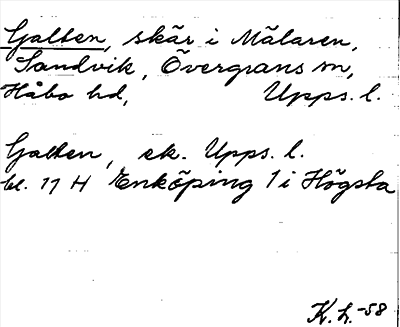 Galten, skär i Mälaren,
Sandvik, Övergrans sn,
Håbo hd, Upps. l.
Galten, ek. Upps. l.
bl. 11 H Enköping 1 i Högsta
K. L. -58